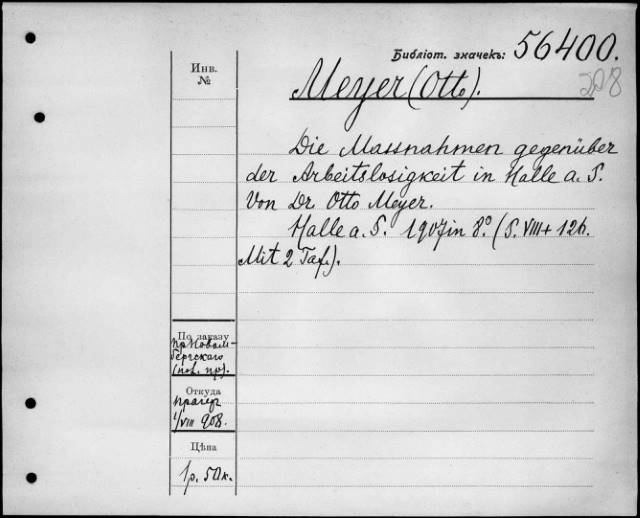 Библіот. значекъ: 56400.
208
Инв.
№
Meyer (Otto).
Die Massnahmen gegenüber
der Arbeitslosigkeit in Halle a. S.
Von Dr. Otto Meyer.
Halle a. S. 1907 in 8.° (S. VIII + 126.
Mit 2 Taf.).
По заказу
бергскаго
(нов. пр).
Откуда
Прагеръ
1/VIII 908.
Цѣна
1 р. 50 к.